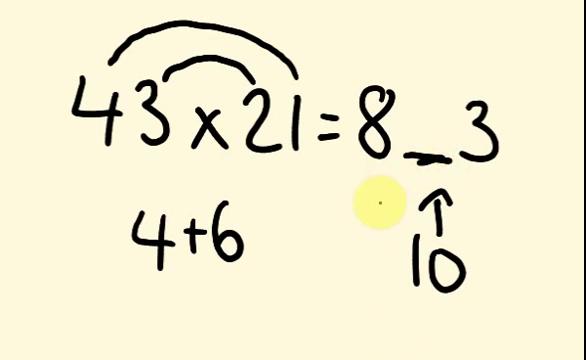 43 x 21 = 8_3
4+6
10